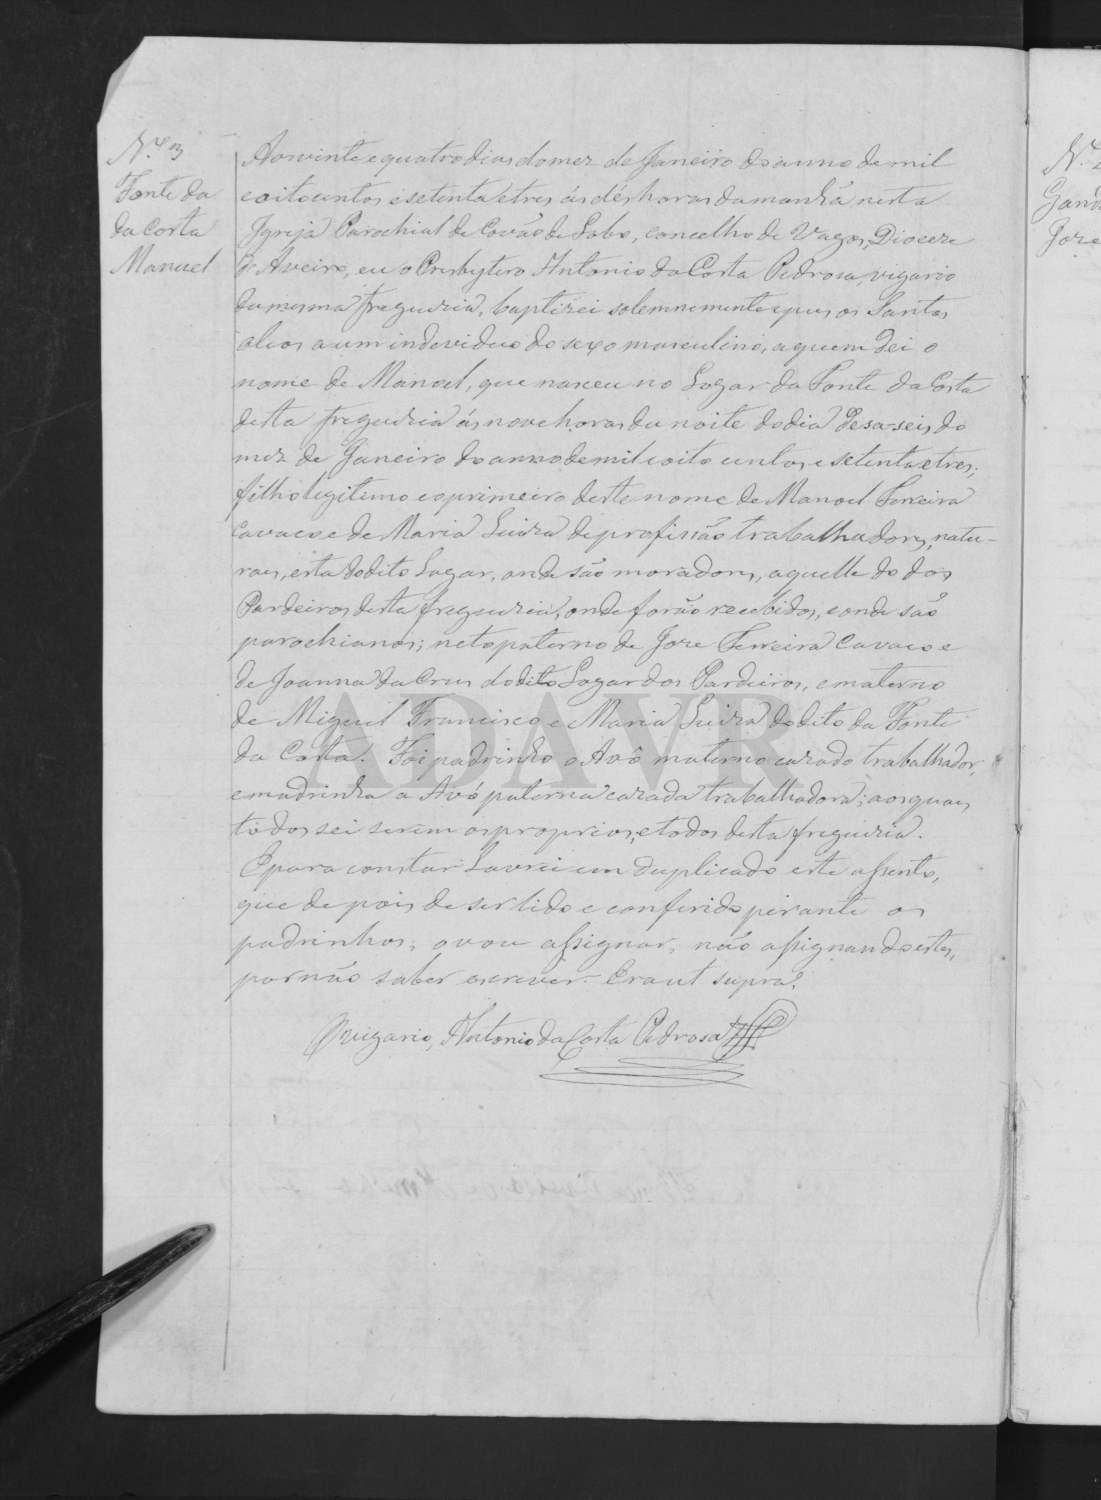 N.º 3
Fonte da
da Costa
Manuel
Aos vinte e quatro dias do mez de Janeiro do anno de mil
e oito centos e setenta e tres ás dés horas da manhã nesta
Igreja Parochial de Covão do Lobo, concelho de Vagos, Diocese
d'Aveiro, eu o Presbytero Antonio da Costa Pedrosa, vigario
da mesma freguezia, baptizei solemnemente e pus os Santos
oleos a um individuo do sexo masculino, a quem dei o
nome de Manoel, que nasceu no Lugar da Fonte da Costa
desta freguezia ás nove horas da noite do dia desaseis do
mez de Janeiro do anno de mil e oito centos e setenta e tres;
filho legitimo e o primeiro deste nome de Manoel Ferreira
Cavaco e de Maria Luiza de profissão trabalhadores, natu-
raes, esta do dito Lugar, onde são moradores, aquelle do dos
Pardeiros desta freguezia, onde forão recebidos, e onde são
parochianos; neto paterno de Joze Ferreira Cavaco e
de Joanna da Crus do dito Lugar dos Pardeiros, e materno
de Miguel Francisco e Maria Luiza do dito da Fonte
da Costa. Foi padrinho o Avô materno cazado trabalhador,
e madrinha a Avó paterna cazada trabalhadora; aos quaes
todos sei serem os proprios, e todos desta freguezia.
E para constar lavrei em duplicado este assento,
que depois de ser lido e conferido perante os
padrinhos, o vou assignar, não assignando estes,
por não saber escrever. Era ut supra.
O vigario, Antonio da Costa Pedrosa
ADAVR
N.º
Gand
Joze